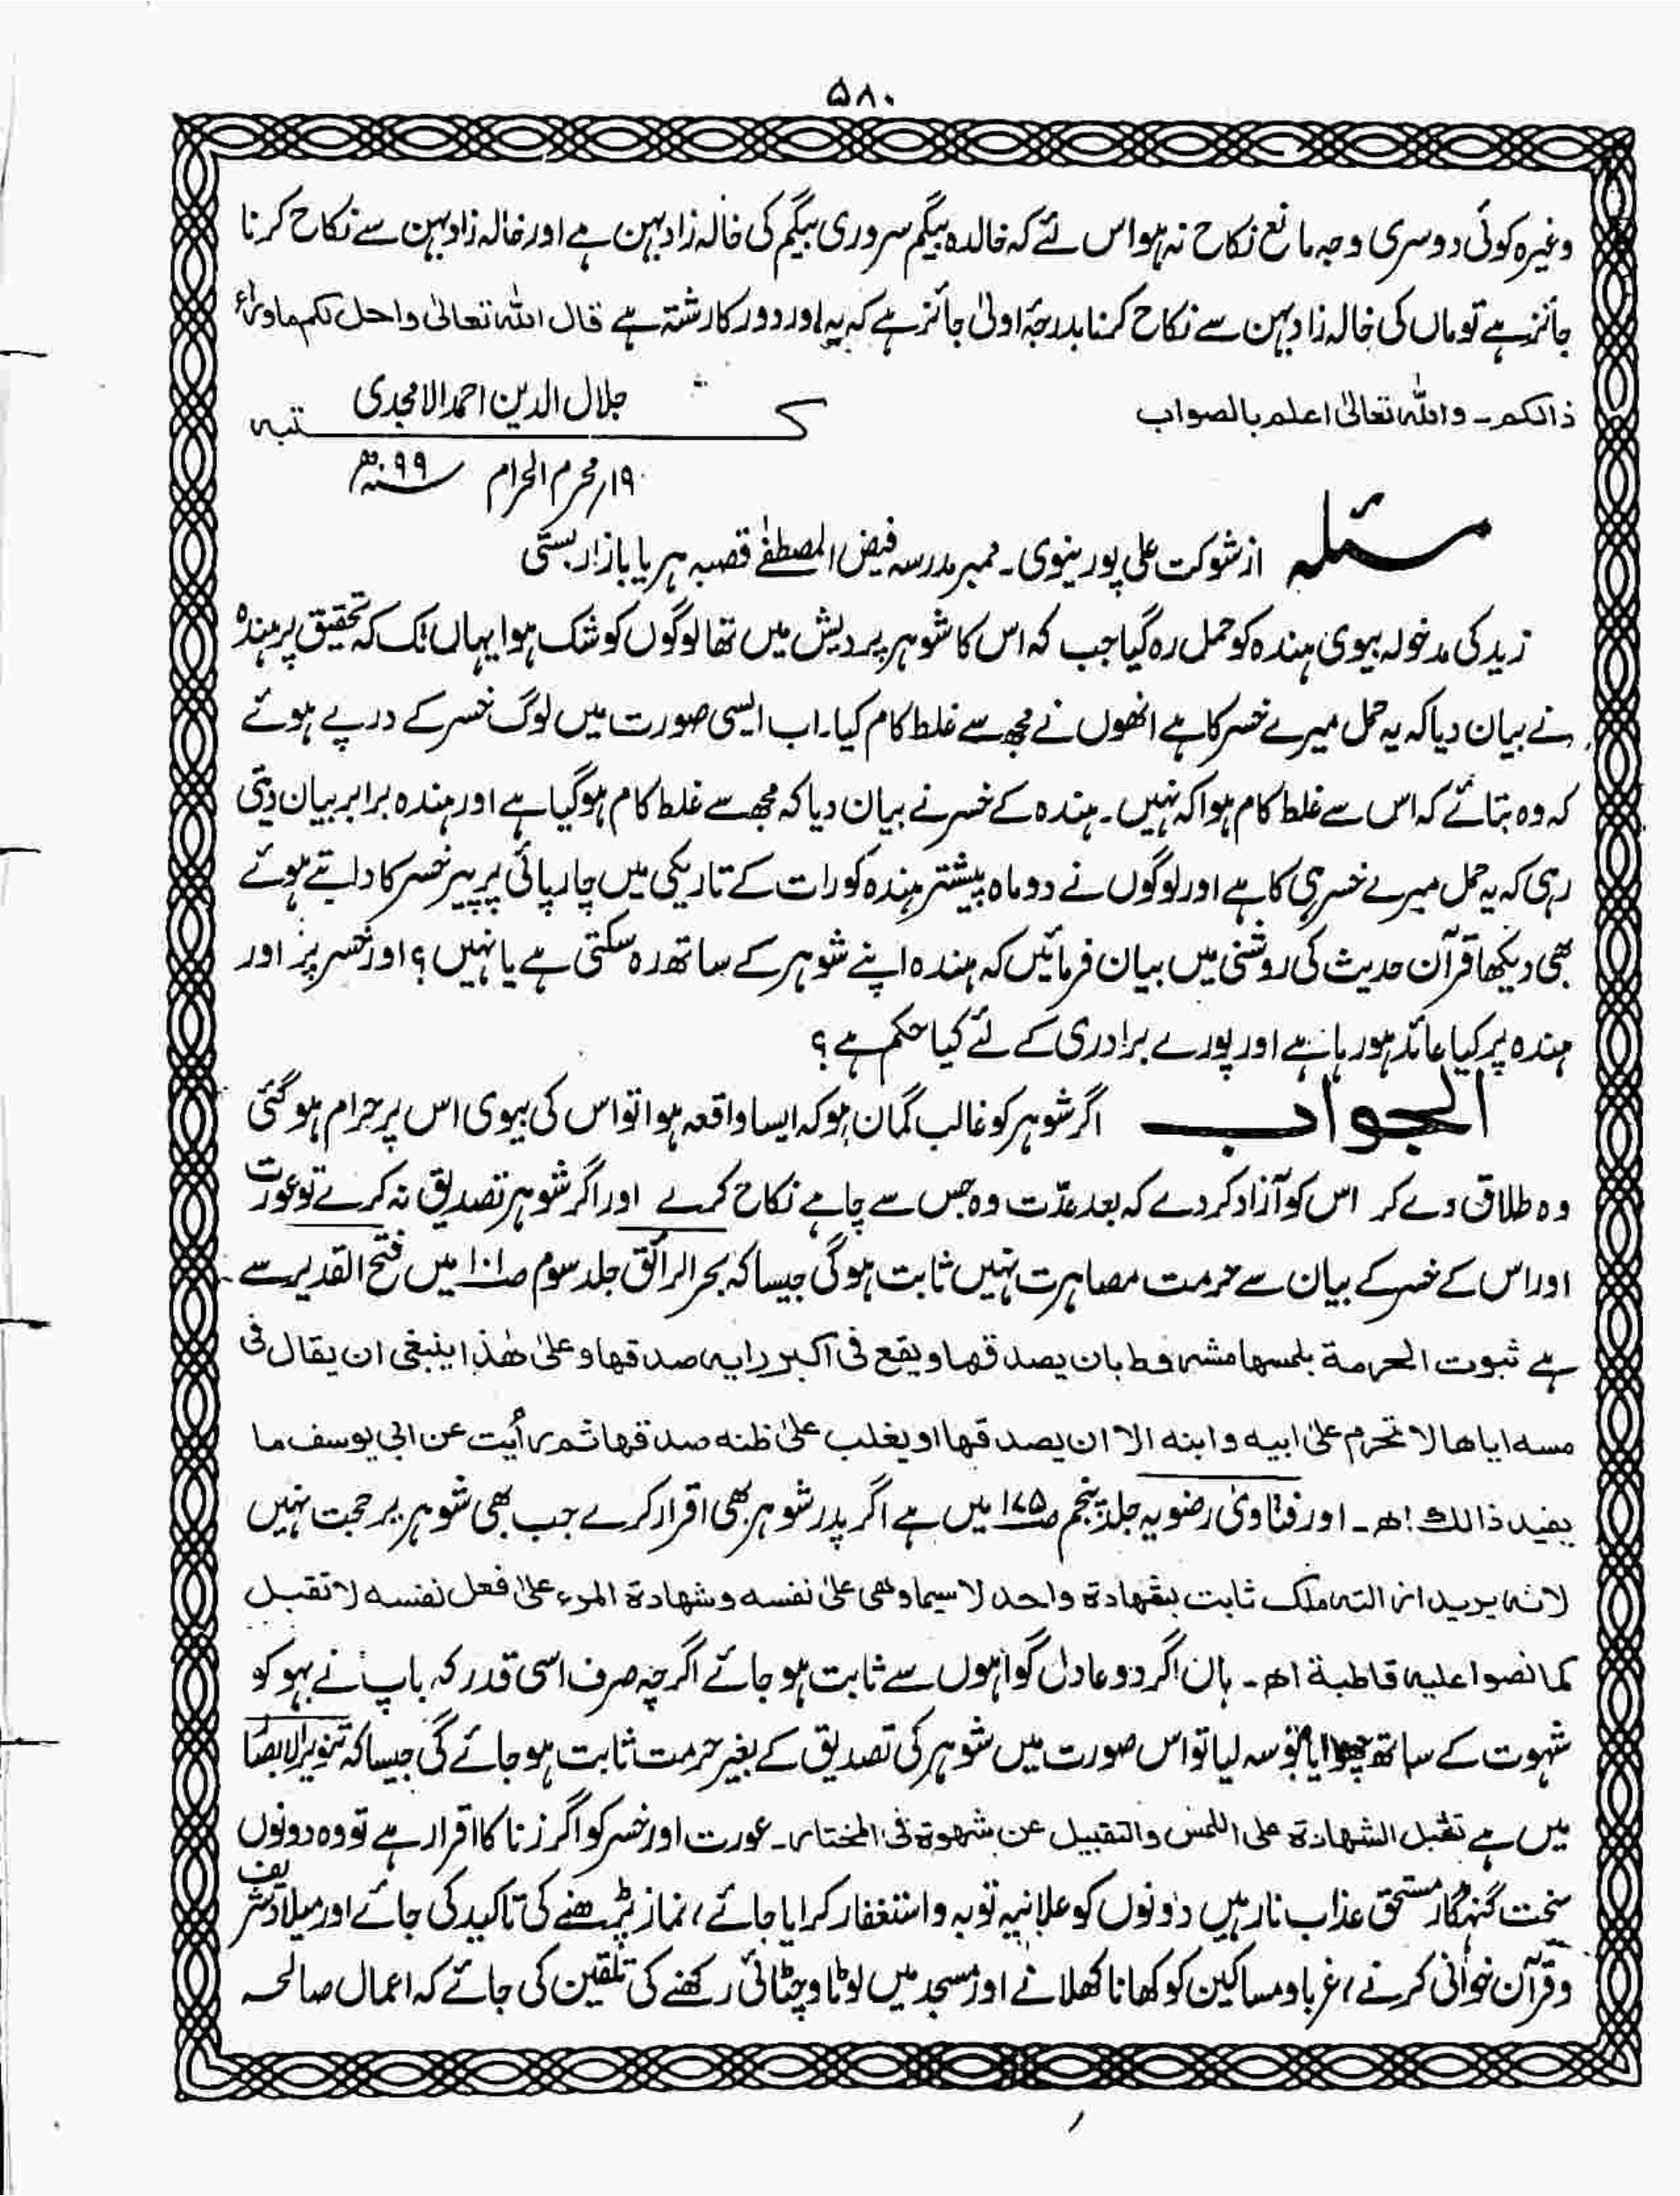 ۵۸۰
وغیرہ کوئی دوسری وجہ مانع نکاح نہ ہو اس لئے کہ خالدہ بیگم سروری بیگم کی خالہ زاد بہن ہے اور خالہ زاد بہن سے نکاح کرنا
جائز ہے تو ماں کی خالہ زاد بہن سے نکاح کرنا بدرجۂ اولیٰ جائز ہے کہ یہ اور دور کا رشتہ ہے قال اللہ تعالیٰ واحل لکم ماوراء
ذالکم۔ واللہ تعالیٰ اعلم بالصواب
جلال الدین احمد الامجدی
کتبہ
۱۹؍ محرم الحرام ۹۹ھ
مسئلہ از شوکت علی پورینوی۔ ممبر مدرسہ فیض المصطفےٰ قصبہ ہریا بازار بستی
زید کی مدخولہ بیوی ہندہ کو حمل رہ گیا جب کہ اس کا شوہر پردیش میں تھا لوگوں کو شک ہوا یہاں تک کہ تحقیق پر ہندہ
نے بیان دیا کہ یہ حمل میرے خسر کا ہے انھوں نے مجھ سے غلط کام کیا۔ اب ایسی صورت میں لوگ خسر کے درپے ہوئے
کہ وہ بتائے کہ اس سے غلط کام ہوا کہ نہیں۔ ہندہ کے خسر نے بیان دیا کہ مجھ سے غلط کام ہوگیا ہے اور ہندہ برابر بیان دیتی
رہی کہ یہ حمل میرے خسر ہی کا ہے اور لوگوں نے دو ماہ پیشتر ہندہ کو رات کے تاریکی میں چارپائی پر پیر خسر کا دابتے ہوئے
بھی دیکھا قرآن حدیث کی روشنی میں بیان فرمائیں کہ ہندہ اپنے شوہر کے ساتھ رہ سکتی ہے یا نہیں؟ اور خسر پر اور
ہندہ پر کیا عائد ہو رہا ہے اور پورے برادری کے لئے کیا حکم ہے؟
الجواب اگر شوہر کو غالب گمان ہو کہ ایسا واقعہ ہوا تو اس کی بیوی اس پر حرام ہوگئی
وہ طلاق دے کر اس کو آزاد کردے کہ بعد عدّت وہ جس سے چاہے نکاح کرے اور اگر شوہر تصدیق نہ کرے تو عورت
اور اس کے خسر کے بیان سے حرمت مصاہرت نہیں ثابت ہوگی جیسا کہ بحرالرائق جلد سوم ص۱۰۱ میں فتح القدیر سے
ہے ثبوت الحرمة بلمسها مشروط بان يصدقها ويقع فی اكبر رايه صدقها وعلیٰ هٰذا ينبغی ان يقال فی
مسه اياها لا تحرم علیٰ ابيه وابنه الا ان يصدقها او يغلب علیٰ ظنه صدقها ثم رأيت عن ابی يوسف ما
يفيد ذالك اھ۔ اور فتاویٰ رضویہ جلد پنجم ص۱۷۵ میں ہے اگر پدر شوہر بھی اقرار کرے جب بھی شوہر پر حجت نہیں
لانه يريد ازالته ملك ثابت بشهادة واحد لاسيما وهی علیٰ نفسه وشهادة المرء علیٰ فعل نفسه لا تقبل
كما نصوا عليه قاطبة اھ۔ ہاں اگر دو عادل گواہوں سے ثابت ہو جائے اگرچہ صرف اسی قدر کہ باپ نے بہو کو
شہوت کے ساتھ چھوا یا بوسہ لیا تو اس صورت میں شوہر کی تصدیق کے بغیر حرمت ثابت ہو جائے گی جیسا کہ تنویر الابصار
میں ہے تقبل الشهادة على اللمس والتقبيل عن شهوة فی المختار۔ عورت اور خسر کو اگر زنا کا اقرار ہے تو وہ دونوں
سخت گنہگار مستحق عذاب نار ہیں دونوں کو علانیہ توبہ و استغفار کرایا جائے، نماز پڑھنے کی تاکید کی جائے اور میلاد شریف
و قرآن خوانی کرنے، غربا و مساکین کو کھانا کھلانے اور مسجد میں لوٹا و چٹائی رکھنے کی تلقین کی جائے کہ اعمال صالحہ